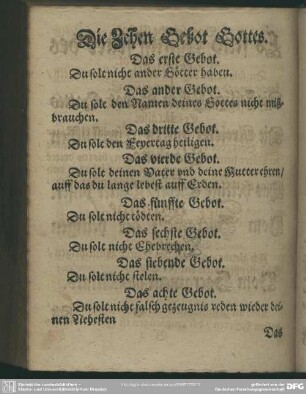 Die Zehen Gebot Gottes.
Das erste Gebot.
Du solt nicht ander Götter haben.
Das ander Gebot.
Du solt den Namen deines Gottes nicht miß-
brauchen.
Das dritte Gebot.
Du solt den Feyertag heiligen.
Das vierde Gebot.
Du solt deinen Vater vnd deine Mutter ehren/
auff das du lange lebest auff Erden.
Das fünffte Gebot.
Du solt nicht tödten.
Das sechste Gebot.
Du solt nicht Ehebrechen.
Das siebende Gebot.
Du solt nicht stelen.
Das achte Gebot.
Du solt nicht falsch gezeugnis reden wieder dei-
nen Nehesten
Das
DFG